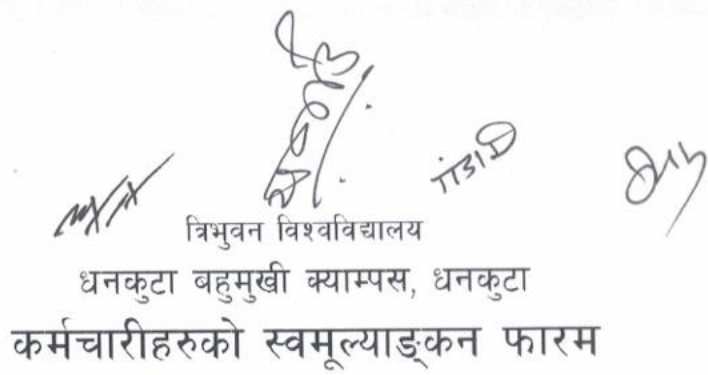 त्रिभुवन विश्वविद्यालय
धनकुटा बहुमुखी क्याम्पस, धनकुटा
कर्मचारीहरुको स्वमूल्याङ्कन फारम